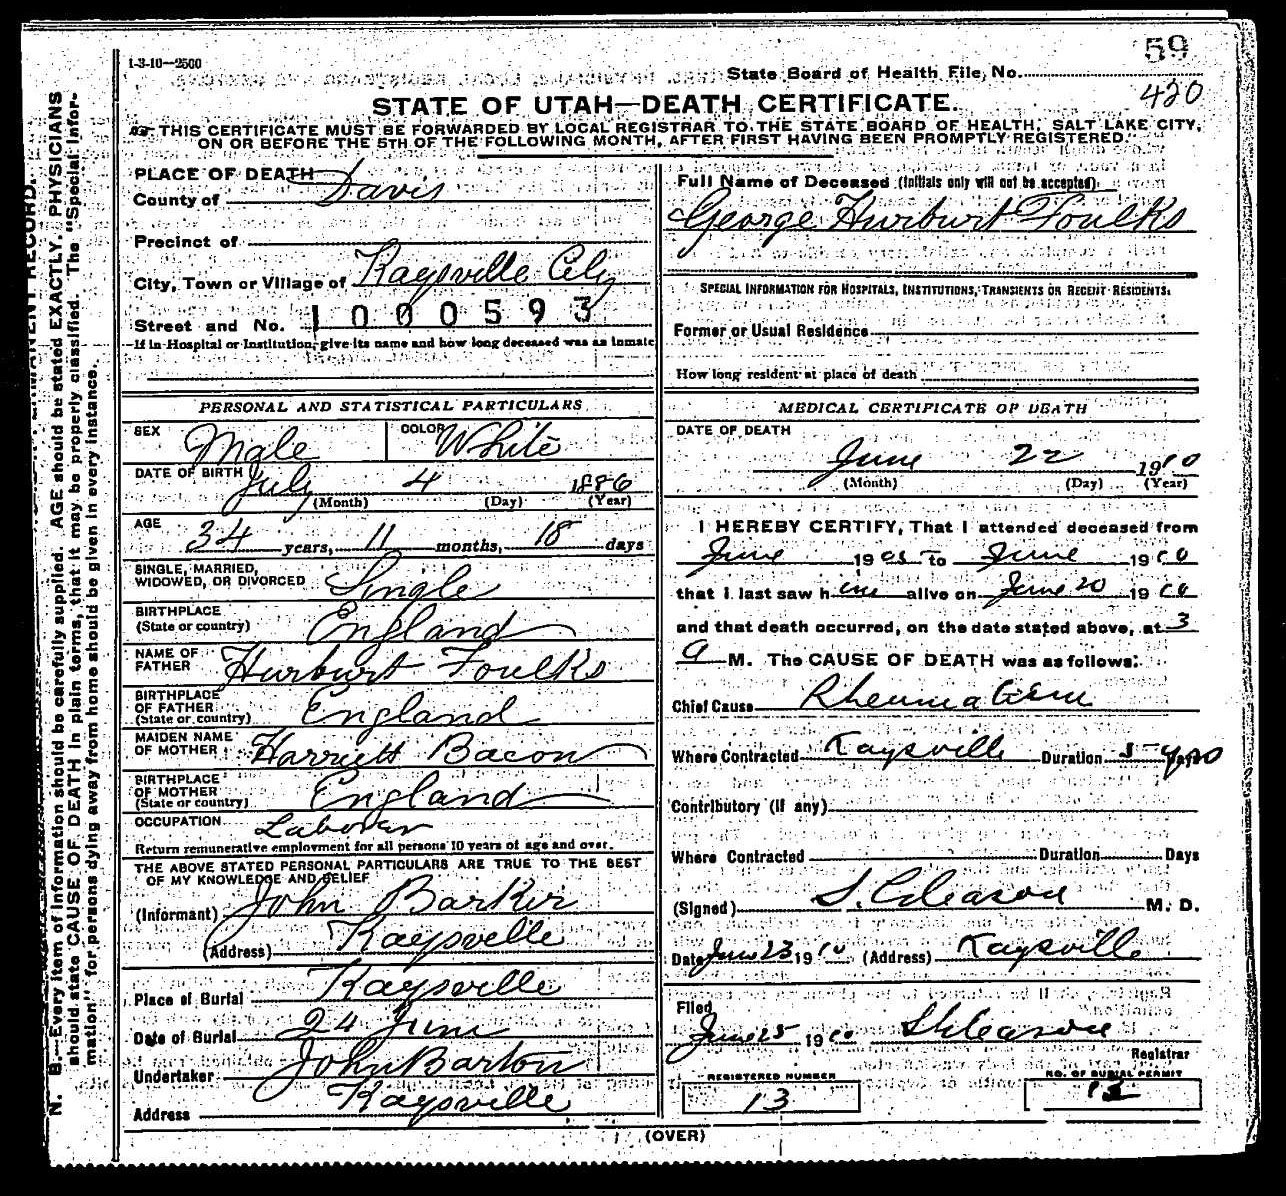 1-3-10—2500
59
State Board of Health File, No.
420
STATE OF UTAH—DEATH CERTIFICATE.
THIS CERTIFICATE MUST BE FORWARDED BY LOCAL REGISTRAR TO THE STATE BOARD OF HEALTH, SALT LAKE CITY,
ON OR BEFORE THE 5TH OF THE FOLLOWING MONTH, AFTER FIRST HAVING BEEN PROMPTLY REGISTERED.
PLACE OF DEATH
County of Davis
Precinct of
City, Town or Village of Kaysville City
Street and No. 1000593
If in Hospital or Institution, give its name and how long deceased was as inmate
PERSONAL AND STATISTICAL PARTICULARS
SEX Male COLOR White
DATE OF BIRTH July 4 1886
(Month) (Day) (Year)
AGE 34 years, 11 months, 18 days
SINGLE, MARRIED,
WIDOWED, OR DIVORCED Single
BIRTHPLACE
(State or country) England
NAME OF
FATHER Hurburt Foulks
BIRTHPLACE
OF FATHER
(State or country) England
MAIDEN NAME
OF MOTHER Harriett Bacon
BIRTHPLACE
OF MOTHER
(State or country) England
OCCUPATION Laborer
Return remunerative employment for all persons 10 years of age and over.
THE ABOVE STATED PERSONAL PARTICULARS ARE TRUE TO THE BEST
OF MY KNOWLEDGE AND BELIEF
(Informant) John Barker
(Address) Kaysville
Place of Burial Kaysville
Date of Burial 24 June
Undertaker John Barton
Address Kaysville
Full Name of Deceased (Initials only will not be accepted)
George Hurburt Foulks
SPECIAL INFORMATION FOR HOSPITALS, INSTITUTIONS, TRANSIENTS OR RECENT RESIDENTS.
Former or Usual Residence
How long resident at place of death
MEDICAL CERTIFICATE OF DEATH
DATE OF DEATH
June 22 1910
(Month) (Day) (Year)
I HEREBY CERTIFY, That I attended deceased from
June 1905 to June 1910
that I last saw him alive on June 20 1910
and that death occurred, on the date stated above, at 3
a M. The CAUSE OF DEATH was as follows:
Chief Cause Rheumatism
Where Contracted Kaysville Duration 5 years
Contributory (if any)
Where Contracted Duration Days
(Signed) S. Gleason M. D.
Date June 23 1910 (Address) Kaysville
Filed
June 25 1910 S Gleason
Registrar
REGISTERED NUMBER
13
NO. OF BURIAL PERMIT
12
(OVER)
N. B.—Every item of information should be carefully supplied. AGE should be stated EXACTLY. PHYSICIANS
should state CAUSE OF DEATH in plain terms, that it may be properly classified. The "Special Infor-
mation" for persons dying away from home should be given in every instance.